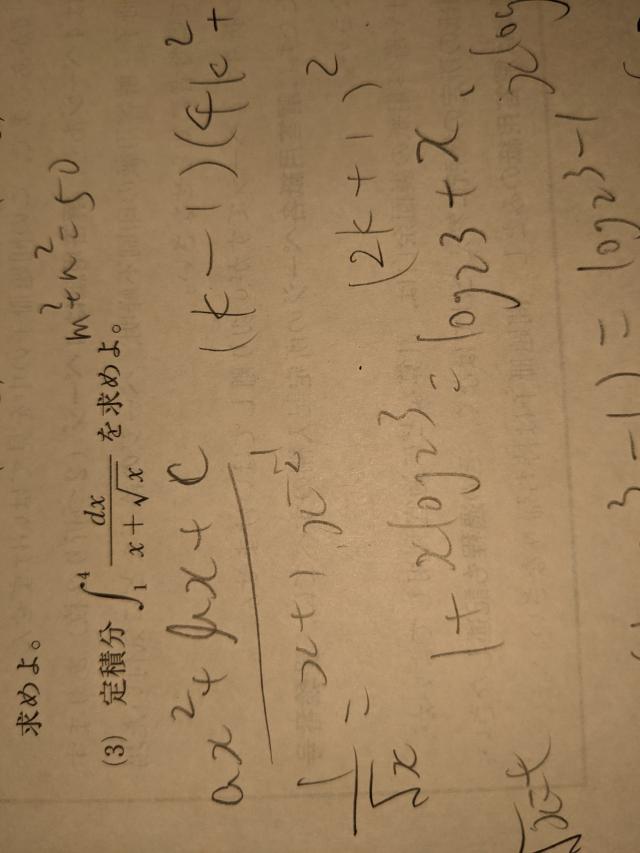 求めよ。
(3) 定積分 ∫₁⁴ dx/(x+√x) を求めよ。
m²+n²=50
ax²+bx+c
(k-1)(4k²+
1/√x = x+1 x^(-1/2)
(2k+1)²
1+xlog23=log23+x、xlog
3-1)=log23-1
√x=t